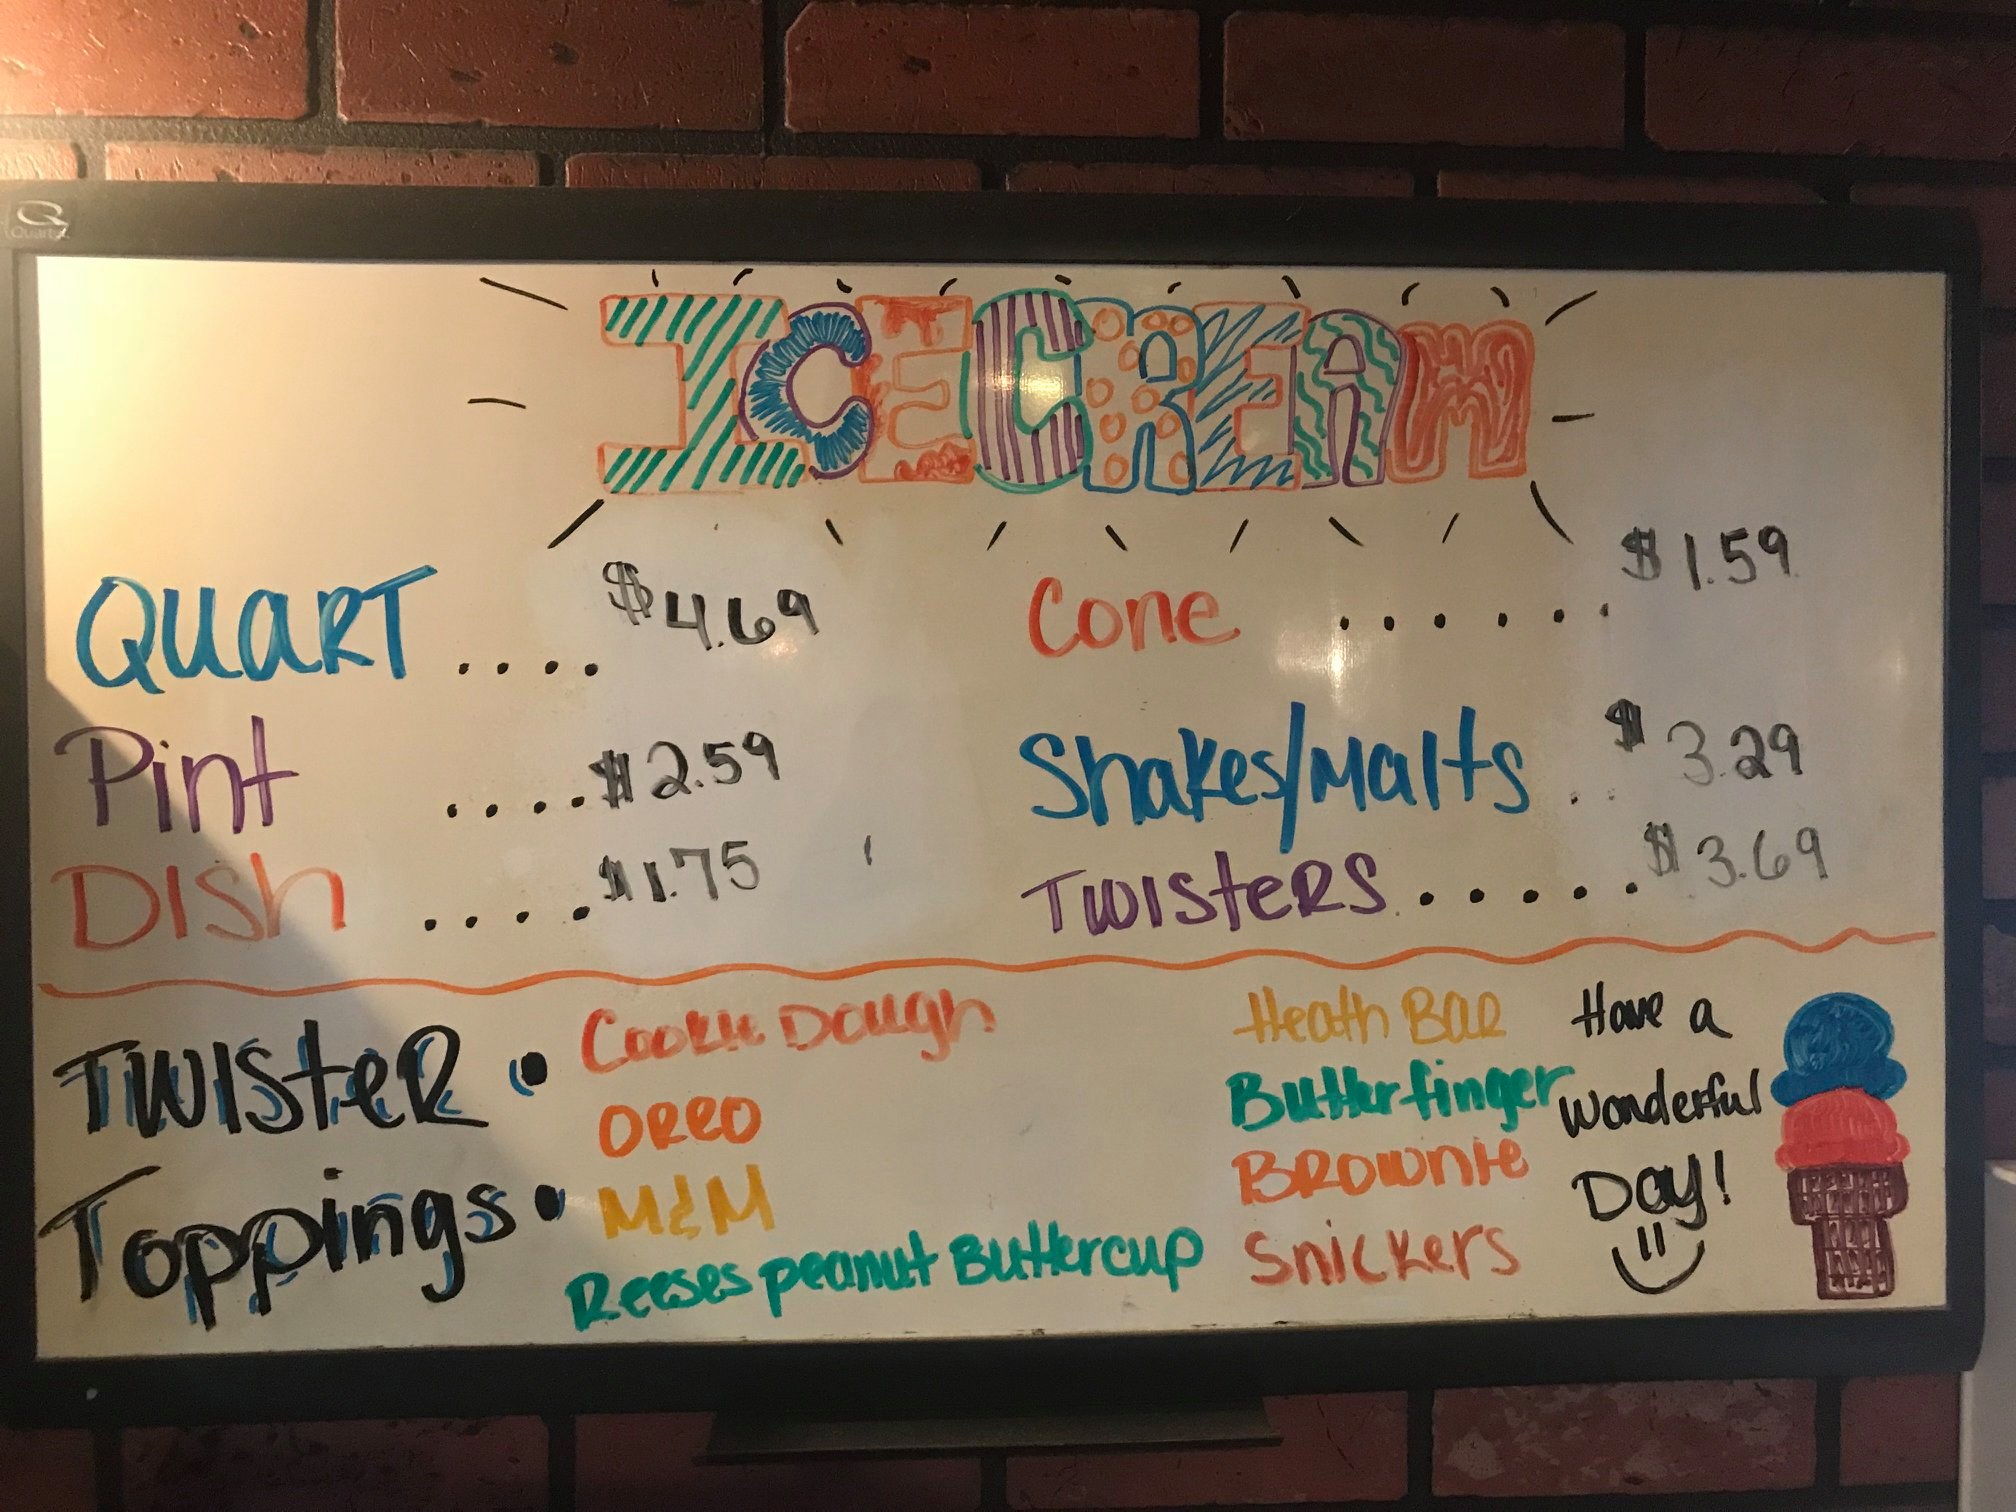 Quartet
ICE CREAM
QUART .... $4.69
Pint .... $2.59
Dish .... $1.75
Cone ...... $1.59
Shakes/Malts .. $3.29
TWISTERS ..... $3.69
TWISTER Toppings
Cookie Dough
OREO
M&M
Reeses peanut Buttercup
Heath Bar
Butterfinger
BROWNIE
Snickers
Have a
Wonderful
Day!